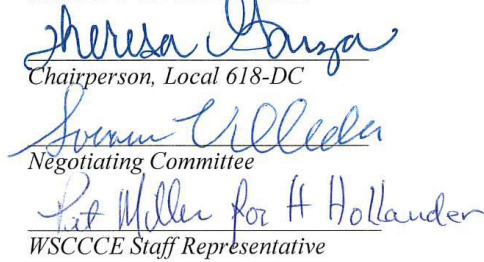 Theresa
Chairperson, Local 618-DC
Negotiating Committee
Pat Miller for H Hollander
WSCCCE Staff Representative